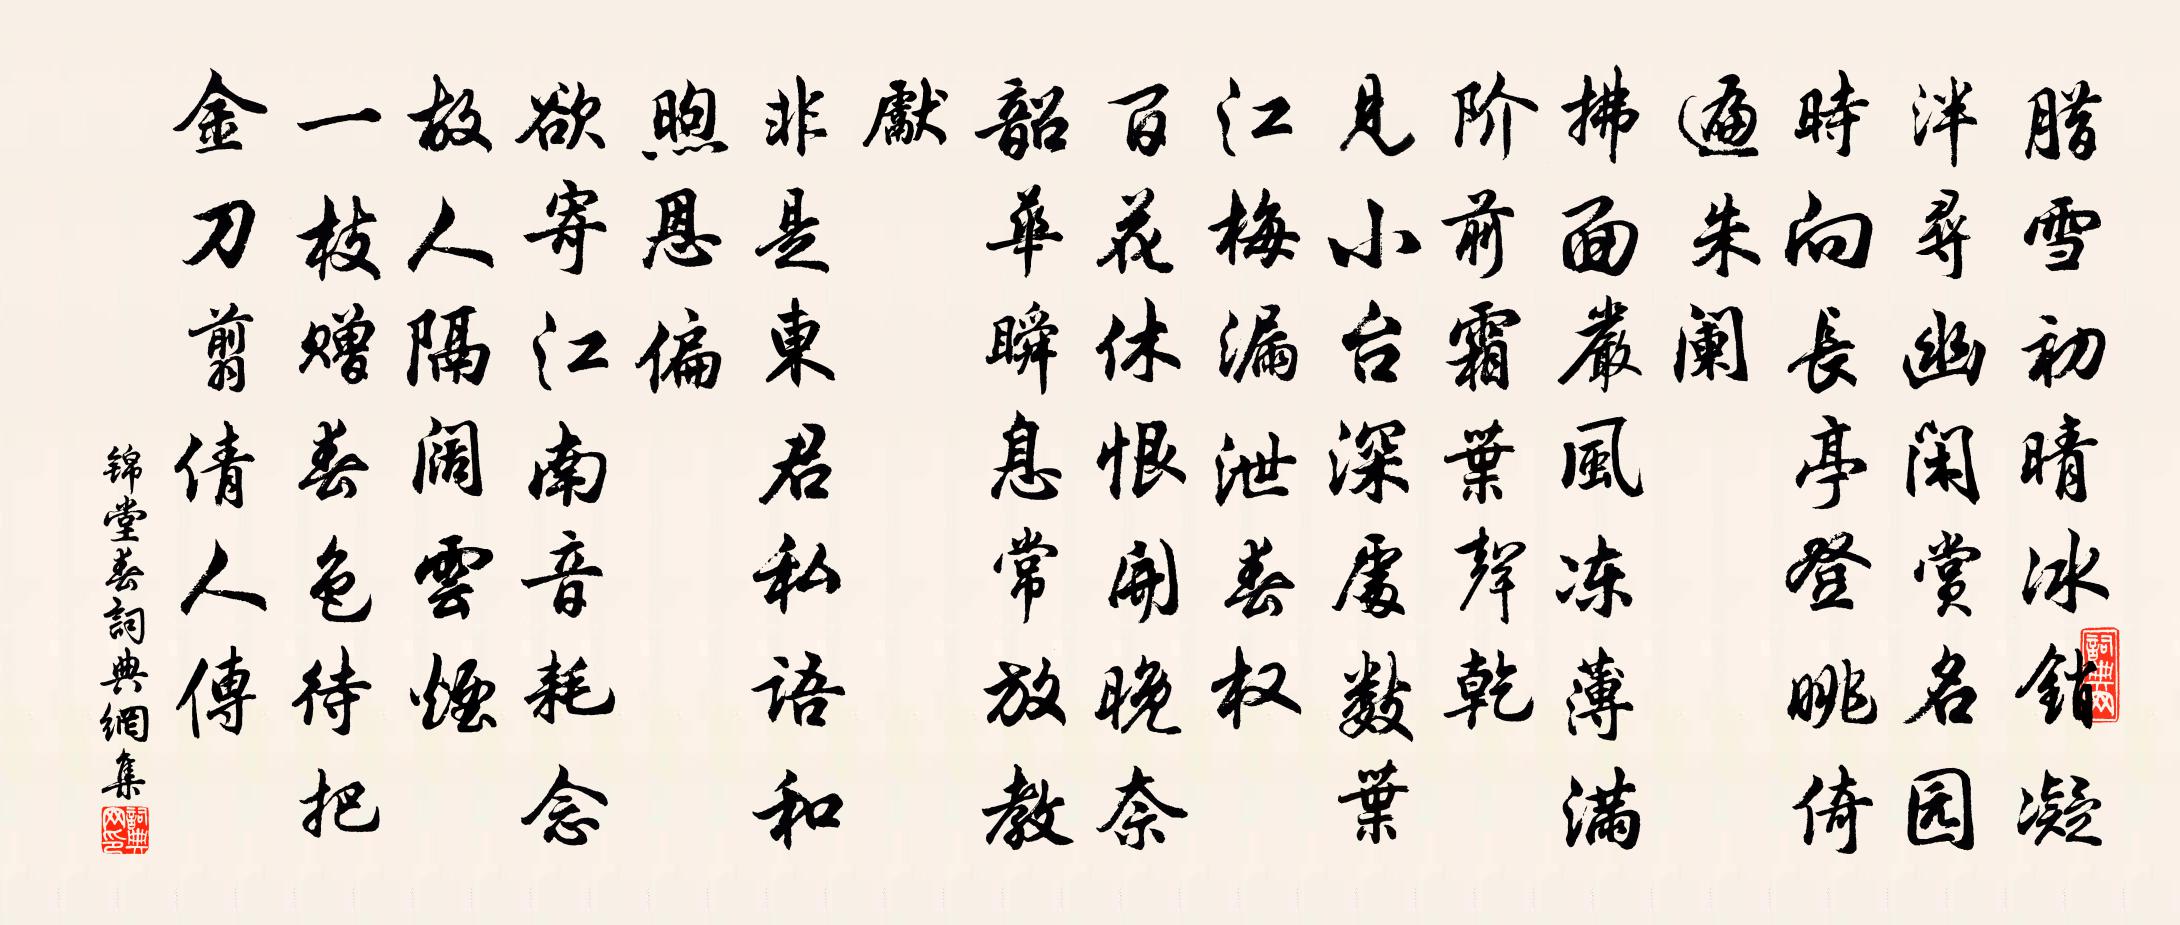 腊雪初晴冰銷凝
泮尋幽闲賞名园
時向長亭登眺倚
遍朱阑
拂面嚴風冻薄满
阶前霜葉聲乾
見小台深處數葉
江梅漏泄春权
百花休恨開晚奈
韶華瞬息常放教
獻
非是東君私语和
煦恩偏
欲寄江南音耗念
故人隔阔雲煙
一枝赠春色待把
金刀剪倩人傳
錦堂春詞典網集
詞典网
詞典